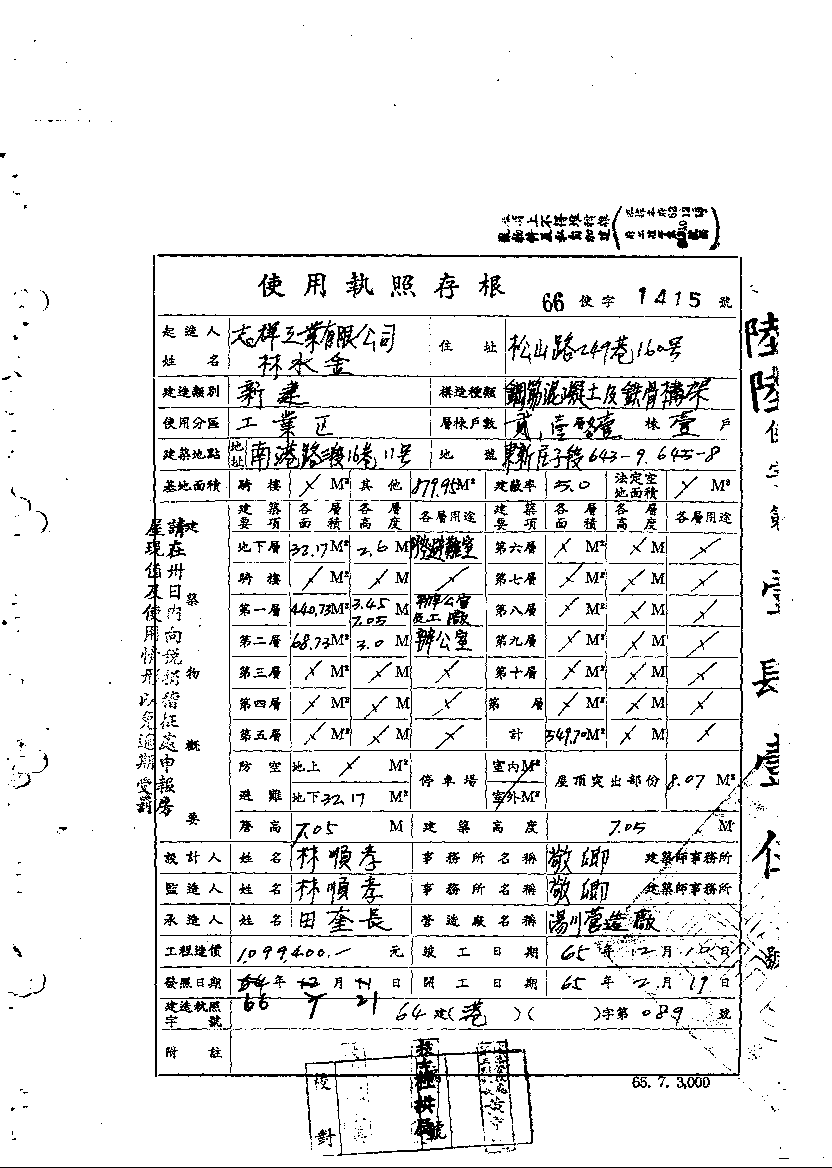 使用執照存根
66 使字 1415 號
起造人姓名 志祥工業有限公司 林水金 住址 松山路249巷160号
建造類別 新建 構造種類 鋼筋混凝土及鉄骨構架
使用分區 工業區 層棟戶數 貳,壹層 壹棟 壹戶
建築地點 地址 南港路三段16巷11号 地號 643-9.645-8
基地面積 騎樓 ╱ M² 其他 879.95M² 建蔽率 50.0 法定空地面積 ╱ M²
建築要項 各層面積 各層高度 各層用途 建築要項 各層面積 各層高度 各層用途
地下層 32.17M² 2.6M 防空避難室 第六層 ╱ M² ╱ M ╱
騎樓 ╱ M² ╱ M ╱ 第七層 ╱ M² ╱ M ╱
第一層 440.73M² 3.45 7.05 辦公室及工廠 第八層 ╱ M² ╱ M ╱
第二層 68.73M² 3.0M 辦公室 第九層 ╱ M² ╱ M ╱
第三層 ╱ M² ╱ M ╱ 第十層 ╱ M² ╱ M ╱
第四層 ╱ M² ╱ M ╱ 第 層 ╱ M² ╱ M ╱
第五層 ╱ M² ╱ M ╱ 計 549.70M² ╱ M ╱
防空避難 地上 ╱ M² 地下 32.17 M² 停車場 室內M² 室外M² 屋頂突出部份 8.07 M²
簷高 7.05 M 建築高度 7.05 M
設計人 姓名 林順孝 事務所名稱 敬卿 建築師事務所
監造人 姓名 林順孝 事務所名稱 敬卿 建築師事務所
承造人 姓名 田奎長 營造廠名稱 湯川營造廠
工程造價 1,099,400.- 元 竣工日期 65年12月10日
發照日期 64年12月11日 66 7 21 開工日期 65年2月19日
建造執照字號 64建(港)( )字第089號
附註
建築物概要
請在卅日內向稅捐稽征處申報房
屋現值及使用情形以免逾期受罰
陸陸使字第壹肆壹伍號
校對
65.7.3,000